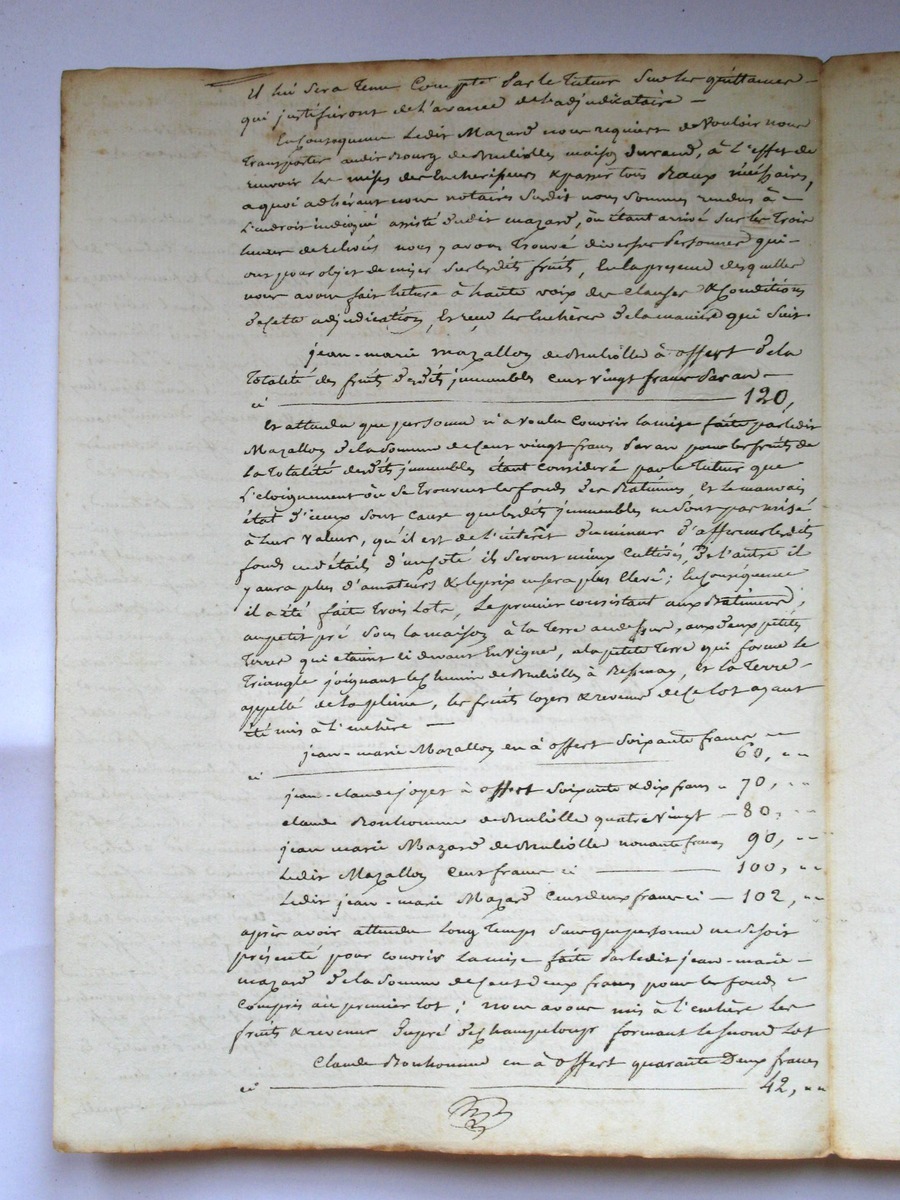 Il lui sera tenu Compte par le tuteur sur les quittances
qui justifieront de l'avance de ladjudicataire —
En Conséquence Ledit Mazard nous requiert de Vouloir nous
transporter audit Bourg de maison durand, à L'effet de
recevoir les mises des Encherisseurs & passer tous Baux nécéssaires,
a quoi adhérant nous notaires Susdit nous Sommes rendus à
L'endroit indiqué assisté dudit mazard, où étant arrivé Sur les Trois
heures de relevés nous y avons Trouvé diverses Personnes qui
ont pour objet de miser Sur lesdits fruits, En la presence desquelles
nous avons fait lecture à haute voix des Clauses & Conditions
de cette adjudication, Et reçu les Enchères de la maniere qui Suit.
jean-marie mazallon de à offert de la
Totalité des fruits desdits immeubles Cent vingt francs par an —
ci — 120,
Et attendu que personne n'a voulu Couvrir la mise faite par ledit
Mazallon de la Somme de Cent vingt francs par an pour les fruits de
La Totalité desdits immeubles étant considéré par le Tuteur que
L'eloignement où Se trouvent les fonds des Batimens, Et le mauvais
état d'iceux sont cause que lesdits immeubles ne Sont pas misé
à leur valeur, qu'il est de l'intérêt du mineur d'affermer lesdits
fonds en détail, d'un coté ils Seront mieux cultivés, & de l'autre il
y aura plus d'amateurs & le prix en sera plus Elevé; En Conséquence
il a été faite trois Lots, Le premier consistant aux Batimens,
au petit pré Sous la maison à la Terre au dessus, aux deux petites
Terres qui etaient ci devant En vigne, a la petite Terre qui forme Le
Triangle joignant le Chemin de à et la Terre
appellé de la pleine, les fruits loyers & revenus de Ce lot ayant
été mis à l'enchère —
jean-marie Mazallon en à offert Soixante francs
ci — 60, " "
jean-claude joyet à offert Soixante & dix francs " 70, " "
claude Bonhomme de quatre Vingt — 80, " "
jean marie Mazard de nonante francs 90, " "
Ledit Mazallon Cent francs ci — 100, " "
Ledit jean-marie Mazard Cent deux francs ci — 102, " "
après avoir attendu Long Temps Sans que personne ne Se Soit
présenté pour couvrir La mise faite Par ledit jean-marie
mazard de la Somme de Cent deux francs pour le fonds
Compris au premier lot; Nous avons mis à l'enchère les
fruits & revenus du pré formant le Second Lot
Claude Bonhomme en à offert quarante Deux francs
ci — 42, " "